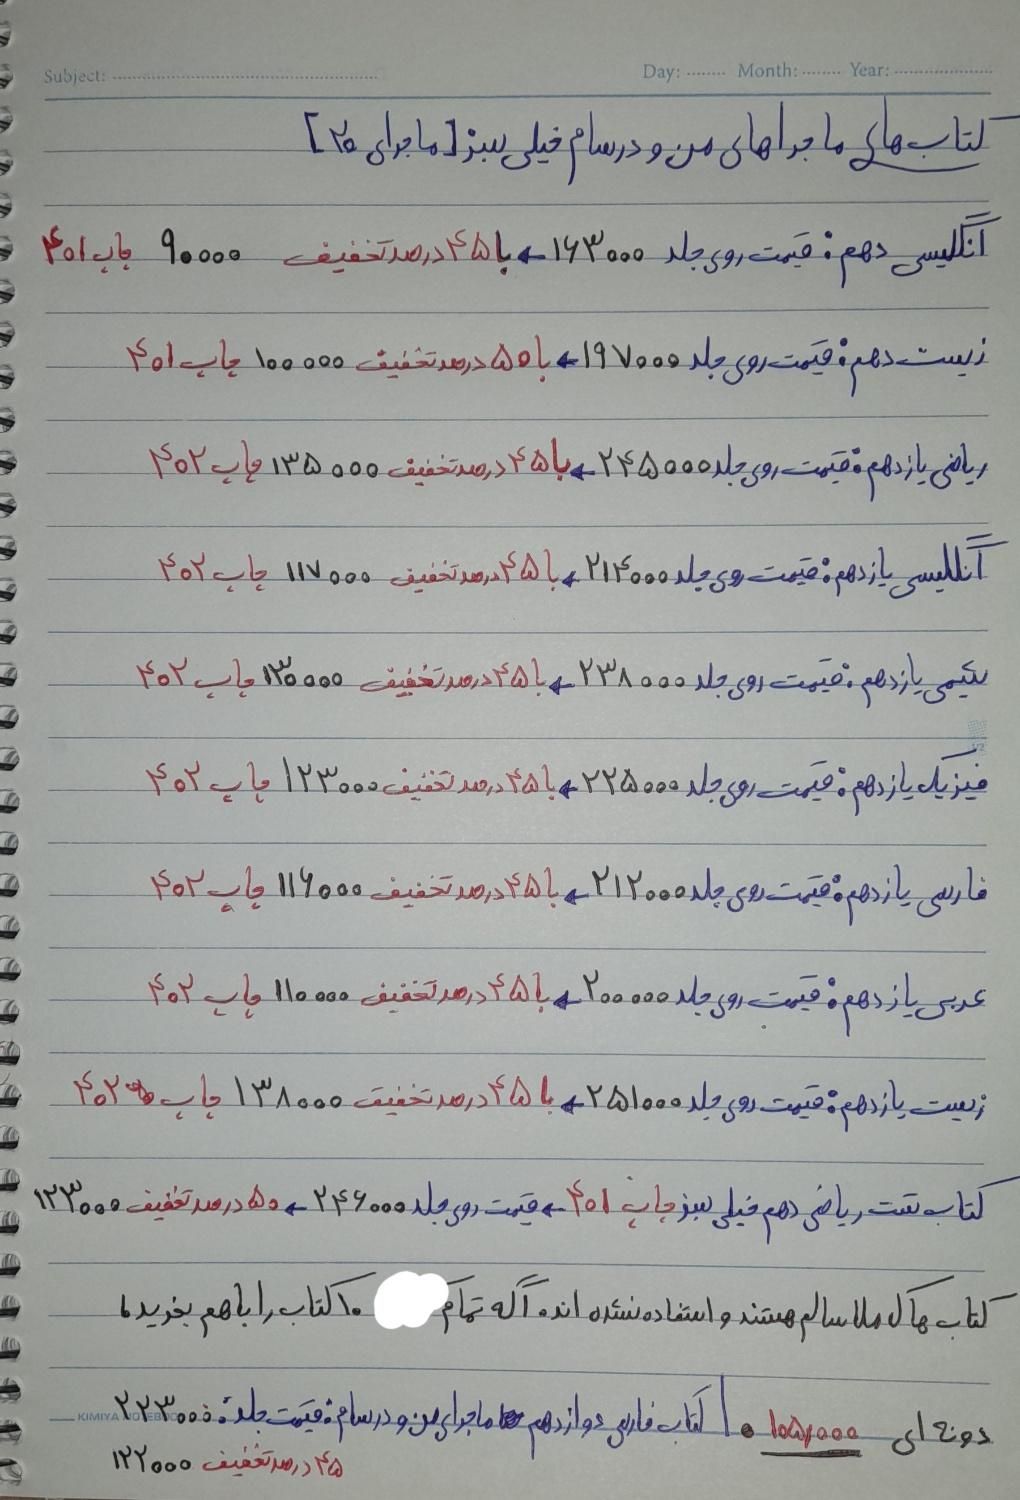 Subject: Day: Month: Year:
کتاب های ماجراهای من و درسام خیلی سبز [ماجرای ۲۰]
انگلیسی دهم: قیمت روی جلد ۱۶۳۰۰۰ ← با ۴۵ درصد تخفیف ۹۰۰۰۰ چاپ ۴۰۱
زیست دهم: قیمت روی جلد ۱۹۷۰۰۰ ← با ۵۰ درصد تخفیف ۱۰۰۰۰۰ چاپ ۴۰۱
ریاضی یازدهم: قیمت روی جلد ۲۴۵۰۰۰ ← با ۴۵ درصد تخفیف ۱۳۵۰۰۰ چاپ ۴۰۲
انگلیسی یازدهم: قیمت روی جلد ۲۱۴۰۰۰ ← با ۴۵ درصد تخفیف ۱۱۷۰۰۰ چاپ ۴۰۲
شیمی یازدهم: قیمت روی جلد ۲۳۸۰۰۰ ← با ۴۵ درصد تخفیف ۱۳۰۰۰۰ چاپ ۴۰۲
فیزیک یازدهم: قیمت روی جلد ۲۲۵۰۰۰ ← با ۴۵ درصد تخفیف ۱۲۳۰۰۰ چاپ ۴۰۲
فارسی یازدهم: قیمت روی جلد ۲۱۲۰۰۰ ← با ۴۵ درصد تخفیف ۱۱۶۰۰۰ چاپ ۴۰۲
عربی یازدهم: قیمت روی جلد ۲۰۰۰۰۰ ← با ۴۵ درصد تخفیف ۱۱۰۰۰۰ چاپ ۴۰۲
زیست یازدهم: قیمت روی جلد ۲۵۱۰۰۰ ← با ۴۵ درصد تخفیف ۱۳۸۰۰۰ چاپ ۴۰۲
کتاب تست ریاضی دهم خیلی سبز چاپ ۴۰۱ ← قیمت روی جلد ۲۴۶۰۰۰ ← ۵۰ درصد تخفیف ۱۲۳۰۰۰
کتاب ها کاملا سالم هستند و استفاده نشده اند. اگه تمام ۱۰ کتاب را با هم بخرید،
دونه ای ۱۰۵۰۰۰. | کتاب فارسی دوازدهم ماجرای من و درسام: قیمت جلد: ۲۲۳۰۰۰
۴۵ درصد تخفیف ۱۲۲۰۰۰
KIMIYA NOTEBOOK